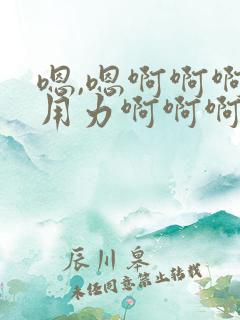 嗯,嗯啊啊啊
用力啊啊啊
辰川皋
未经同意禁止转载